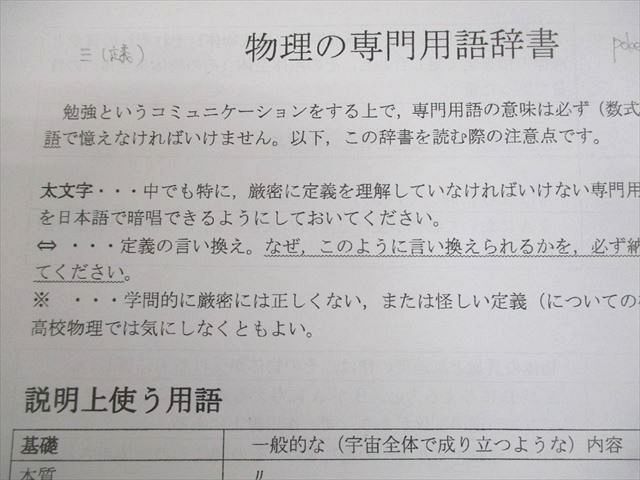 三(定義)
物理の専門用語辞書
勉強というコミュニケーションをする上で,専門用語の意味は必ず(数式
語で憶えなければいけません。以下,この辞書を読む際の注意点です。
太文字・・・中でも特に,厳密に定義を理解していなければいけない専門用
を日本語で暗唱できるようにしておいてください。
⇔ ・・・定義の言い換え。なぜ,このように言い換えられるかを,必ず納
てください。
※ ・・・学問的に厳密には正しくない,または怪しい定義(についての
高校物理では気にしなくともよい。
説明上使う用語
基礎 一般的な(宇宙全体で成り立つような)内容
本質 〃